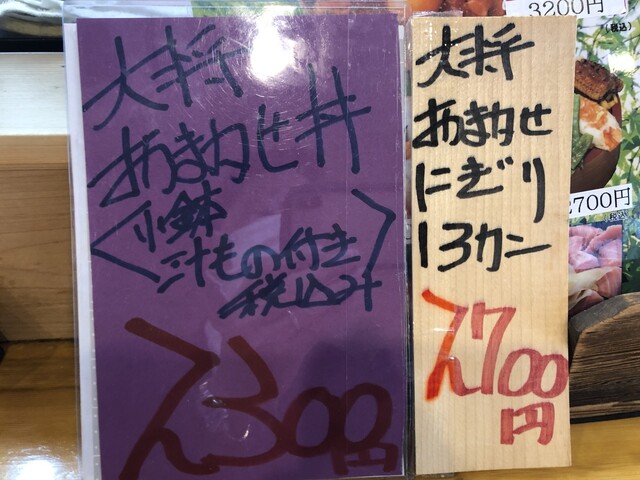 大将
おまかせ丼
〈小鉢
汁もの付き〉
税込み
2300円
大将
おまかせ
にぎり
13カン
2700円
3200円
(税込)
2700円